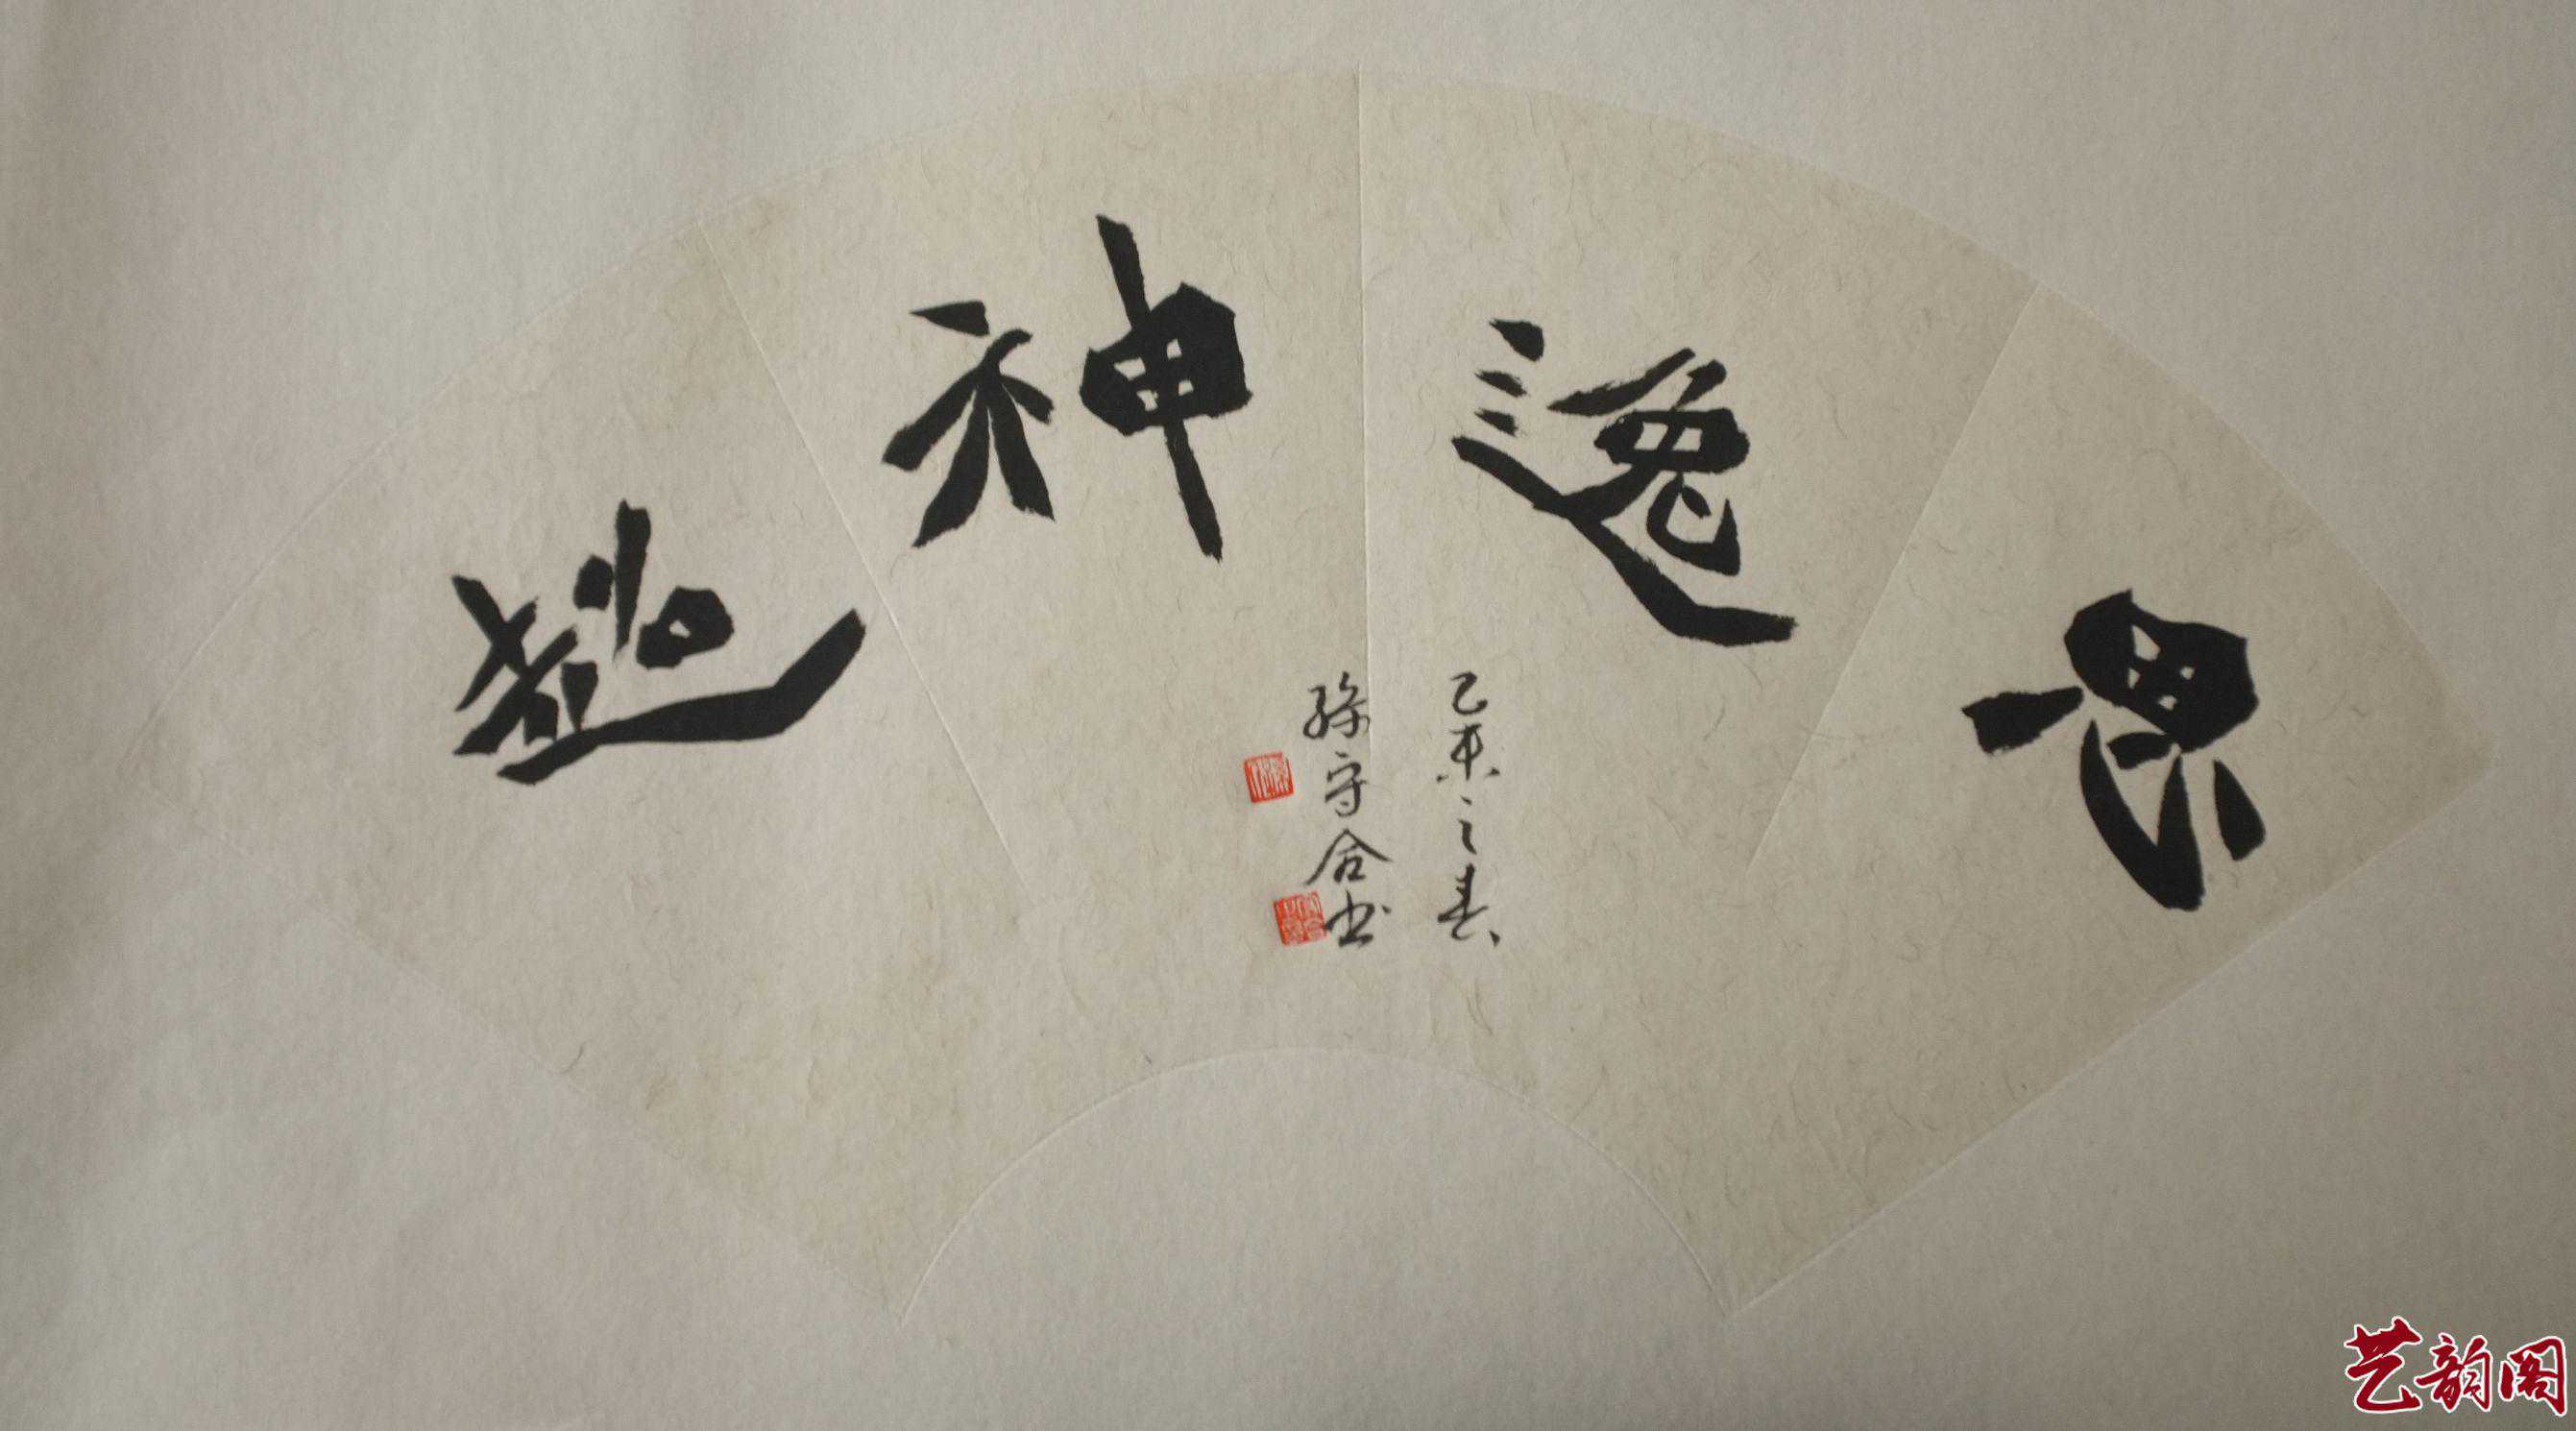 思逸神超
乙未之春
孙守合书
艺韵阁